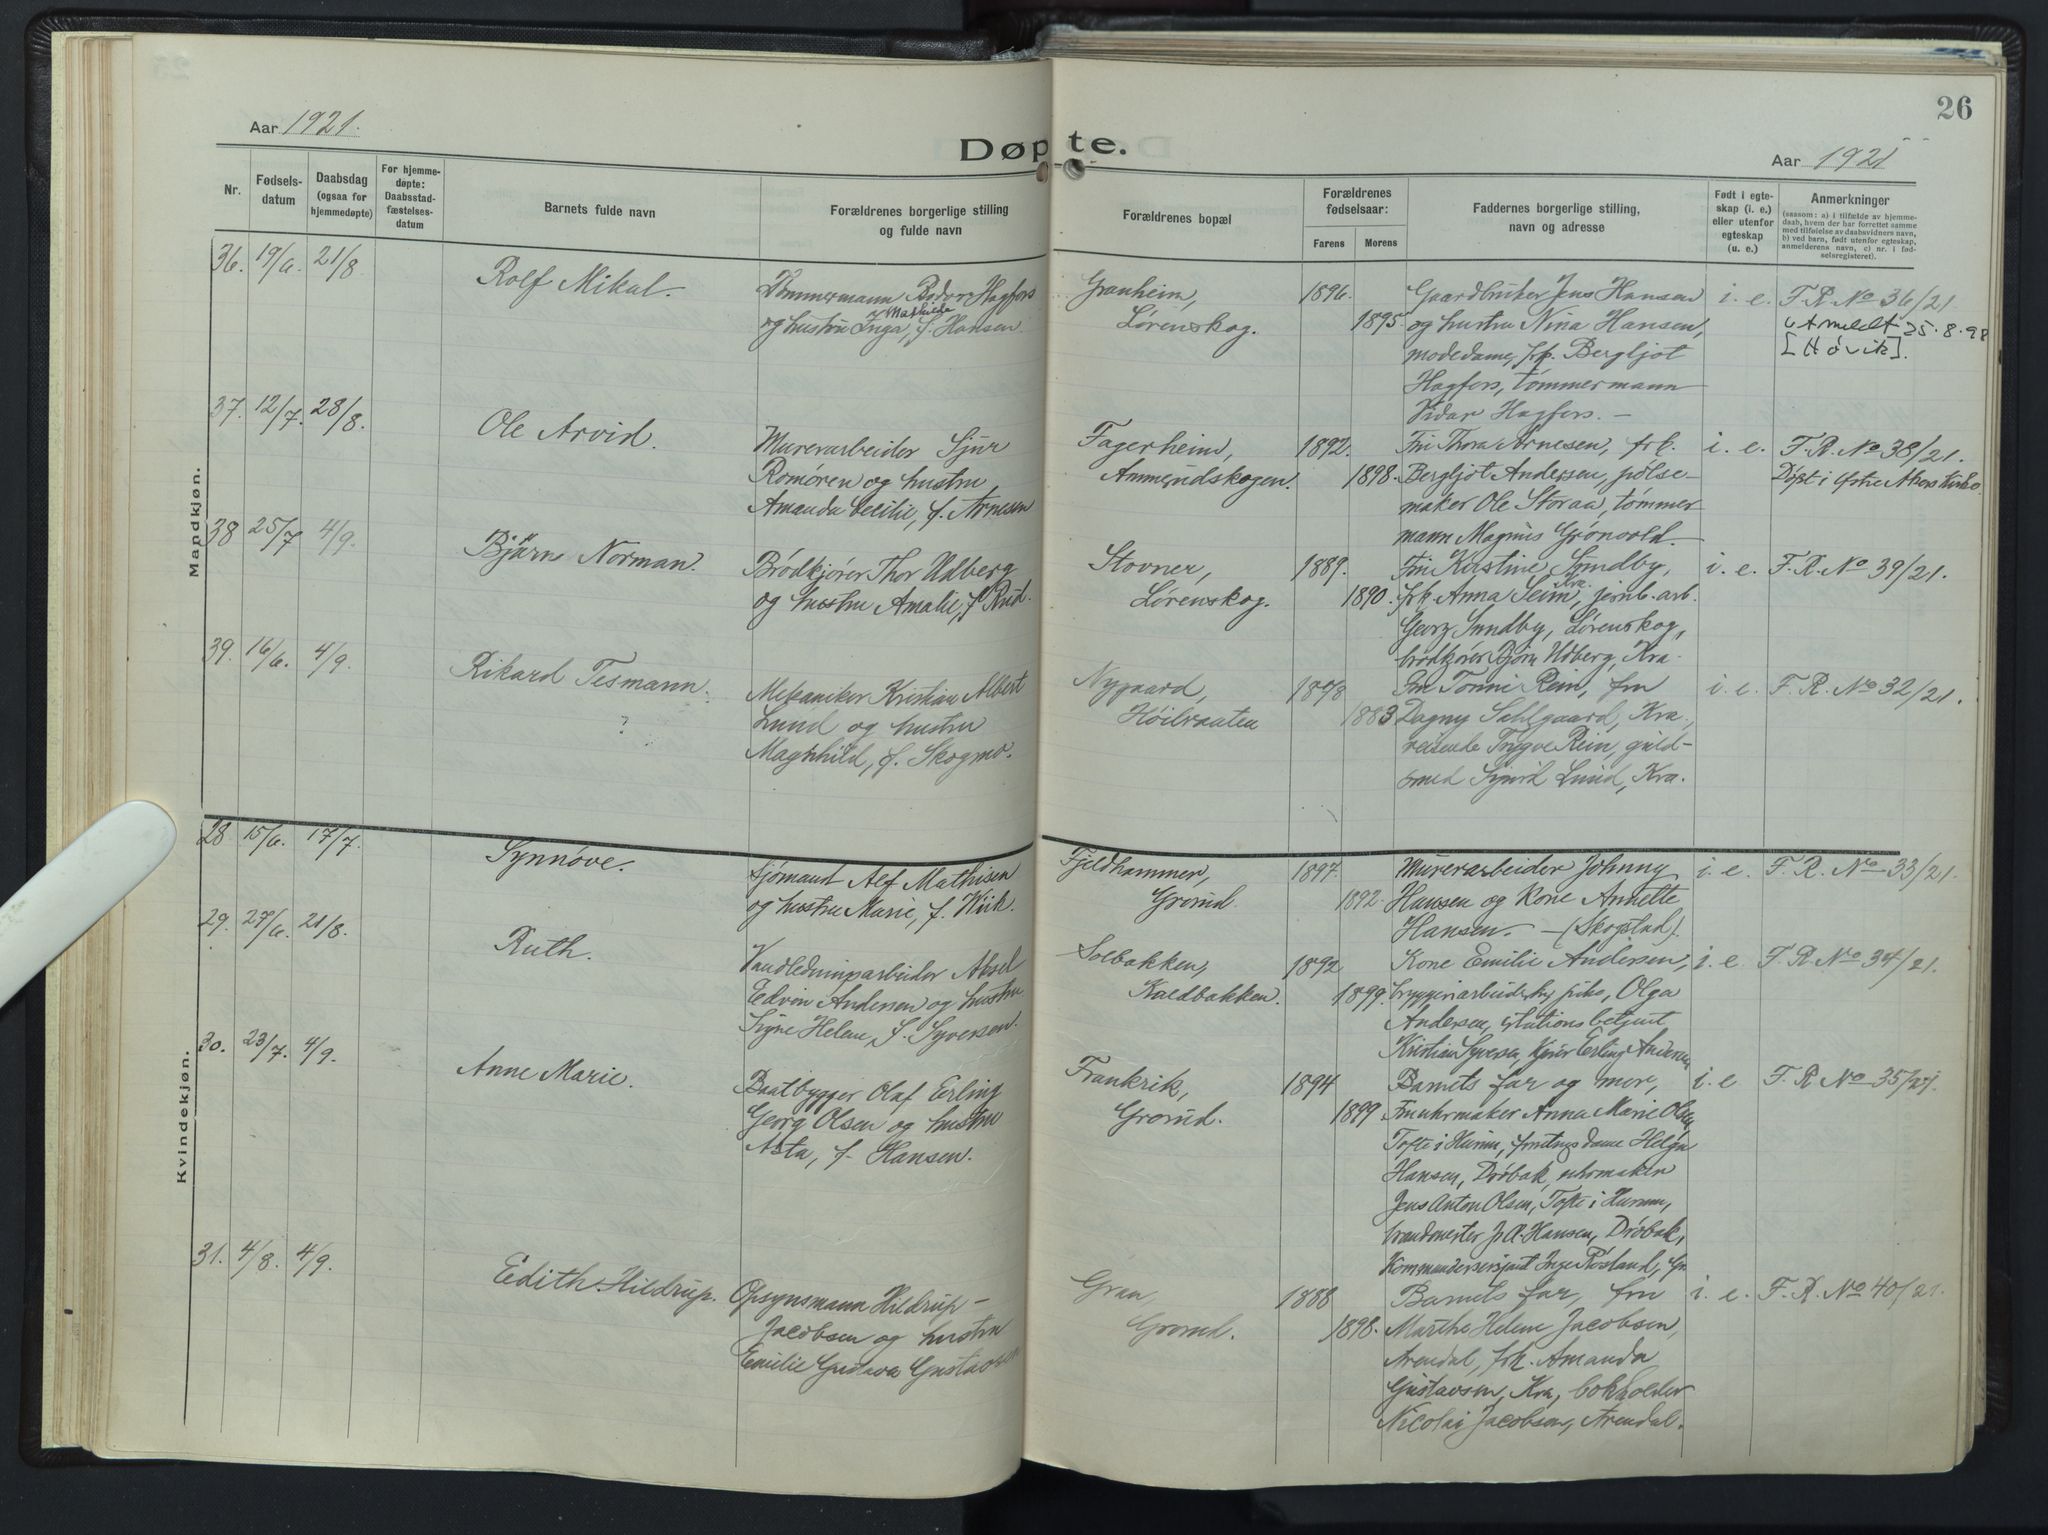 Aar 1921.
Døpte.
26
Aar 1921
Nr.
Fødsels-
datum
Daabsdag
(ogsaa for
hjemmedøpte)
For hjemme-
døpte:
Daabsstad-
fæstelses-
datum
Barnets fulde navn
Forældrenes borgerlige stilling
og fulde navn
Forældrenes bopæl
Forældrenes
fødselsaar:
Farens
Morens
Faddernes borgerlige stilling,
navn og adresse
Født i egte-
skap (i. e.)
eller utenfor
egteskap
(u. e.)
Anmerkninger
(saasom: a) i tilfælde av hjemme-
daab, hvem der har forrettet samme
med tilføielse av daabsvidners navn,
b) ved barn, født utenfor egteskap,
anmelderens navn, c) nr. i fød-
selsregisteret).
Mandkjøn.
36. 19/6. 21/8.
Rolf Mikal.
Tømmermann Hagfors
Mathilde
og hustru Inga, f. Hansen.
Granheim,
Lørenskog.
1896.
1895.
Gaardbruker Jens Hansen
og hustru Nina Hansen,
modedame, frk. Bergljot
Hagfors, tømmermann
Vidar Hagfors. –
i. e.
F. R. No 36/21.
Utmeldt 25.8.98
[Høvik].
37. 12/7. 28/8.
Ole Arvid.
Murerarbeider Sjur
Romøren og hustru
Amanda Cecilie, f. Arnesen
Fagerheim,
Ammerudskogen.
1892.
1898.
Fru Thora Arnesen, frk.
Bergljot Andersen, pølse-
maker Ole Storaa, tømmer
mann Magnus Grønvold.
i. e.
F. R. No 38/21.
Døpt i Østre Akers kirke.
38 25/7 4/9.
Bjärne Norman.
Brødkjører Thor Udberg
og hustru Amalie, f. Rud.
Stovner,
Lørenskog.
1889.
1890.
Fru Kristine Sundby,
Kra.
frk. Anna Seim, jernb. arb.
Georg Sundby, Lørenskog,
brødkjører Bjørn Udberg, Kra.
i. e.
F. R. No 39/21.
39. 16/6. 4/9.
Rikard Tesmann.
?
Mekaniker Kristian Albert
Lund og hustru
Magnhild, f. Skogmo.
Nygaard,
Høibraaten
1878
1883
Fru Tonni Rein, fru
Dagny Sahlgaard, Kra.,
reisende Trygve Rein, guld-
smed Sigurd Lund, Kra.
i. e.
F. R. No 32/21.
Kvindekjøn.
28 15/6. 17/7.
Synnøve.
Sjømand Alf Mathisen
og hustru Marie, f. Wiik.
Fjeldhammer,
Grorud.
1897.
1892.
Murerarbeider Johnny
Hansen og Kone Annette
Hansen. – (Skogstad).
i. e.
F. R. No 33/21.
29. 27/6. 21/8.
Ruth.
Vandledningsarbeider Aksel
Edvin Andersen og hustru
Signe Helene, f. Syversen.
Solbakken,
Kaldbakken.
1892
1899.
Kone Emilie Andersen,
Olga
Andersen, stationsbetjent
Kristian Syversen, Kjører Erling Andersen
i. e
F. R. No 34/21.
30. 23/7. 4/9.
Anne Marie.
Baatbygger Olaf Erling
Georg Olsen og hustru
Asta, f. Hansen.
Frankrik,
Grorud.
1894
1899
Barnets far og more,
Fru uhrmaker Anna Marie Olsen,
Tofte i Hurum, Helga
Hansen, Drøbak, uhrmaker
Jens Anton Olsen, Tofte i Hurum,
Hansen, Drøbak,
Kommandersersjant Inge Røsland,
i. e
F. R. No 35/21.
31. 4/8. 4/9.
Edith Hildrup.
Opsynsmann Hildrup –
Jacobsen og hustru
Emilie Gustava Gustavsen
Gran,
Grorud.
1888
1898.
Barnets far, fru
Marthe Helene Jacobsen,
Arendal, frk. Amanda
Gustavsen, Kra, bokholder
Nicolai Jacobsen, Arendal.
i. e.
F. R. No 40/21.